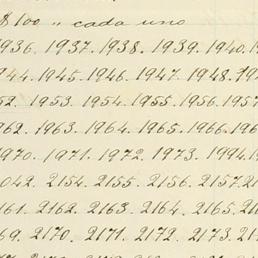 $100 " cada uno
1936. 1937. 1938. 1939. 1940. 1
1944. 1945. 1946. 1947. 1948. 19
52. 1953. 1954. 1955. 1956. 1957
1962. 1963. 1964. 1965. 1966. 196
1970. 1971. 1972. 1973. 1994. 19
2042. 2154. 2155. 2156. 2157. 21
2161. 2162. 2163. 2164. 2165. 21
69. 2170. 2171. 2172. 2173. 21